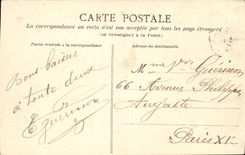 CARTE POSTALE
La correspondance au recto n'est pas acceptée par tous les pays étrangers
(Se renseigner à la Poste)
Partie réservée à la correspondance
Adresse du destinataire
Bons baisers
à toute deux
E Guerinon
Mme Guérinon
66 Avenue Philippe
Auguste
Paris XIe